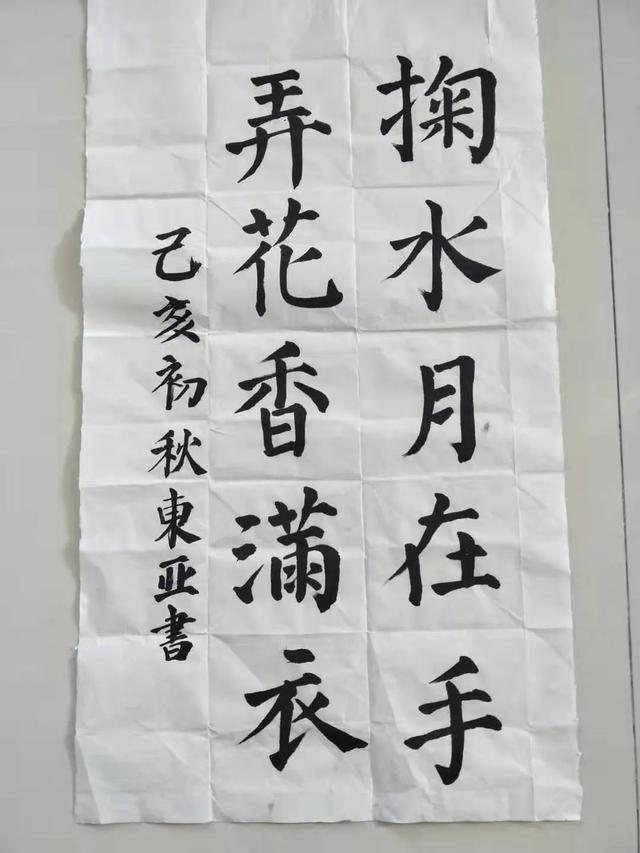 掬水月在手
弄花香滿衣
己亥初秋東亚書